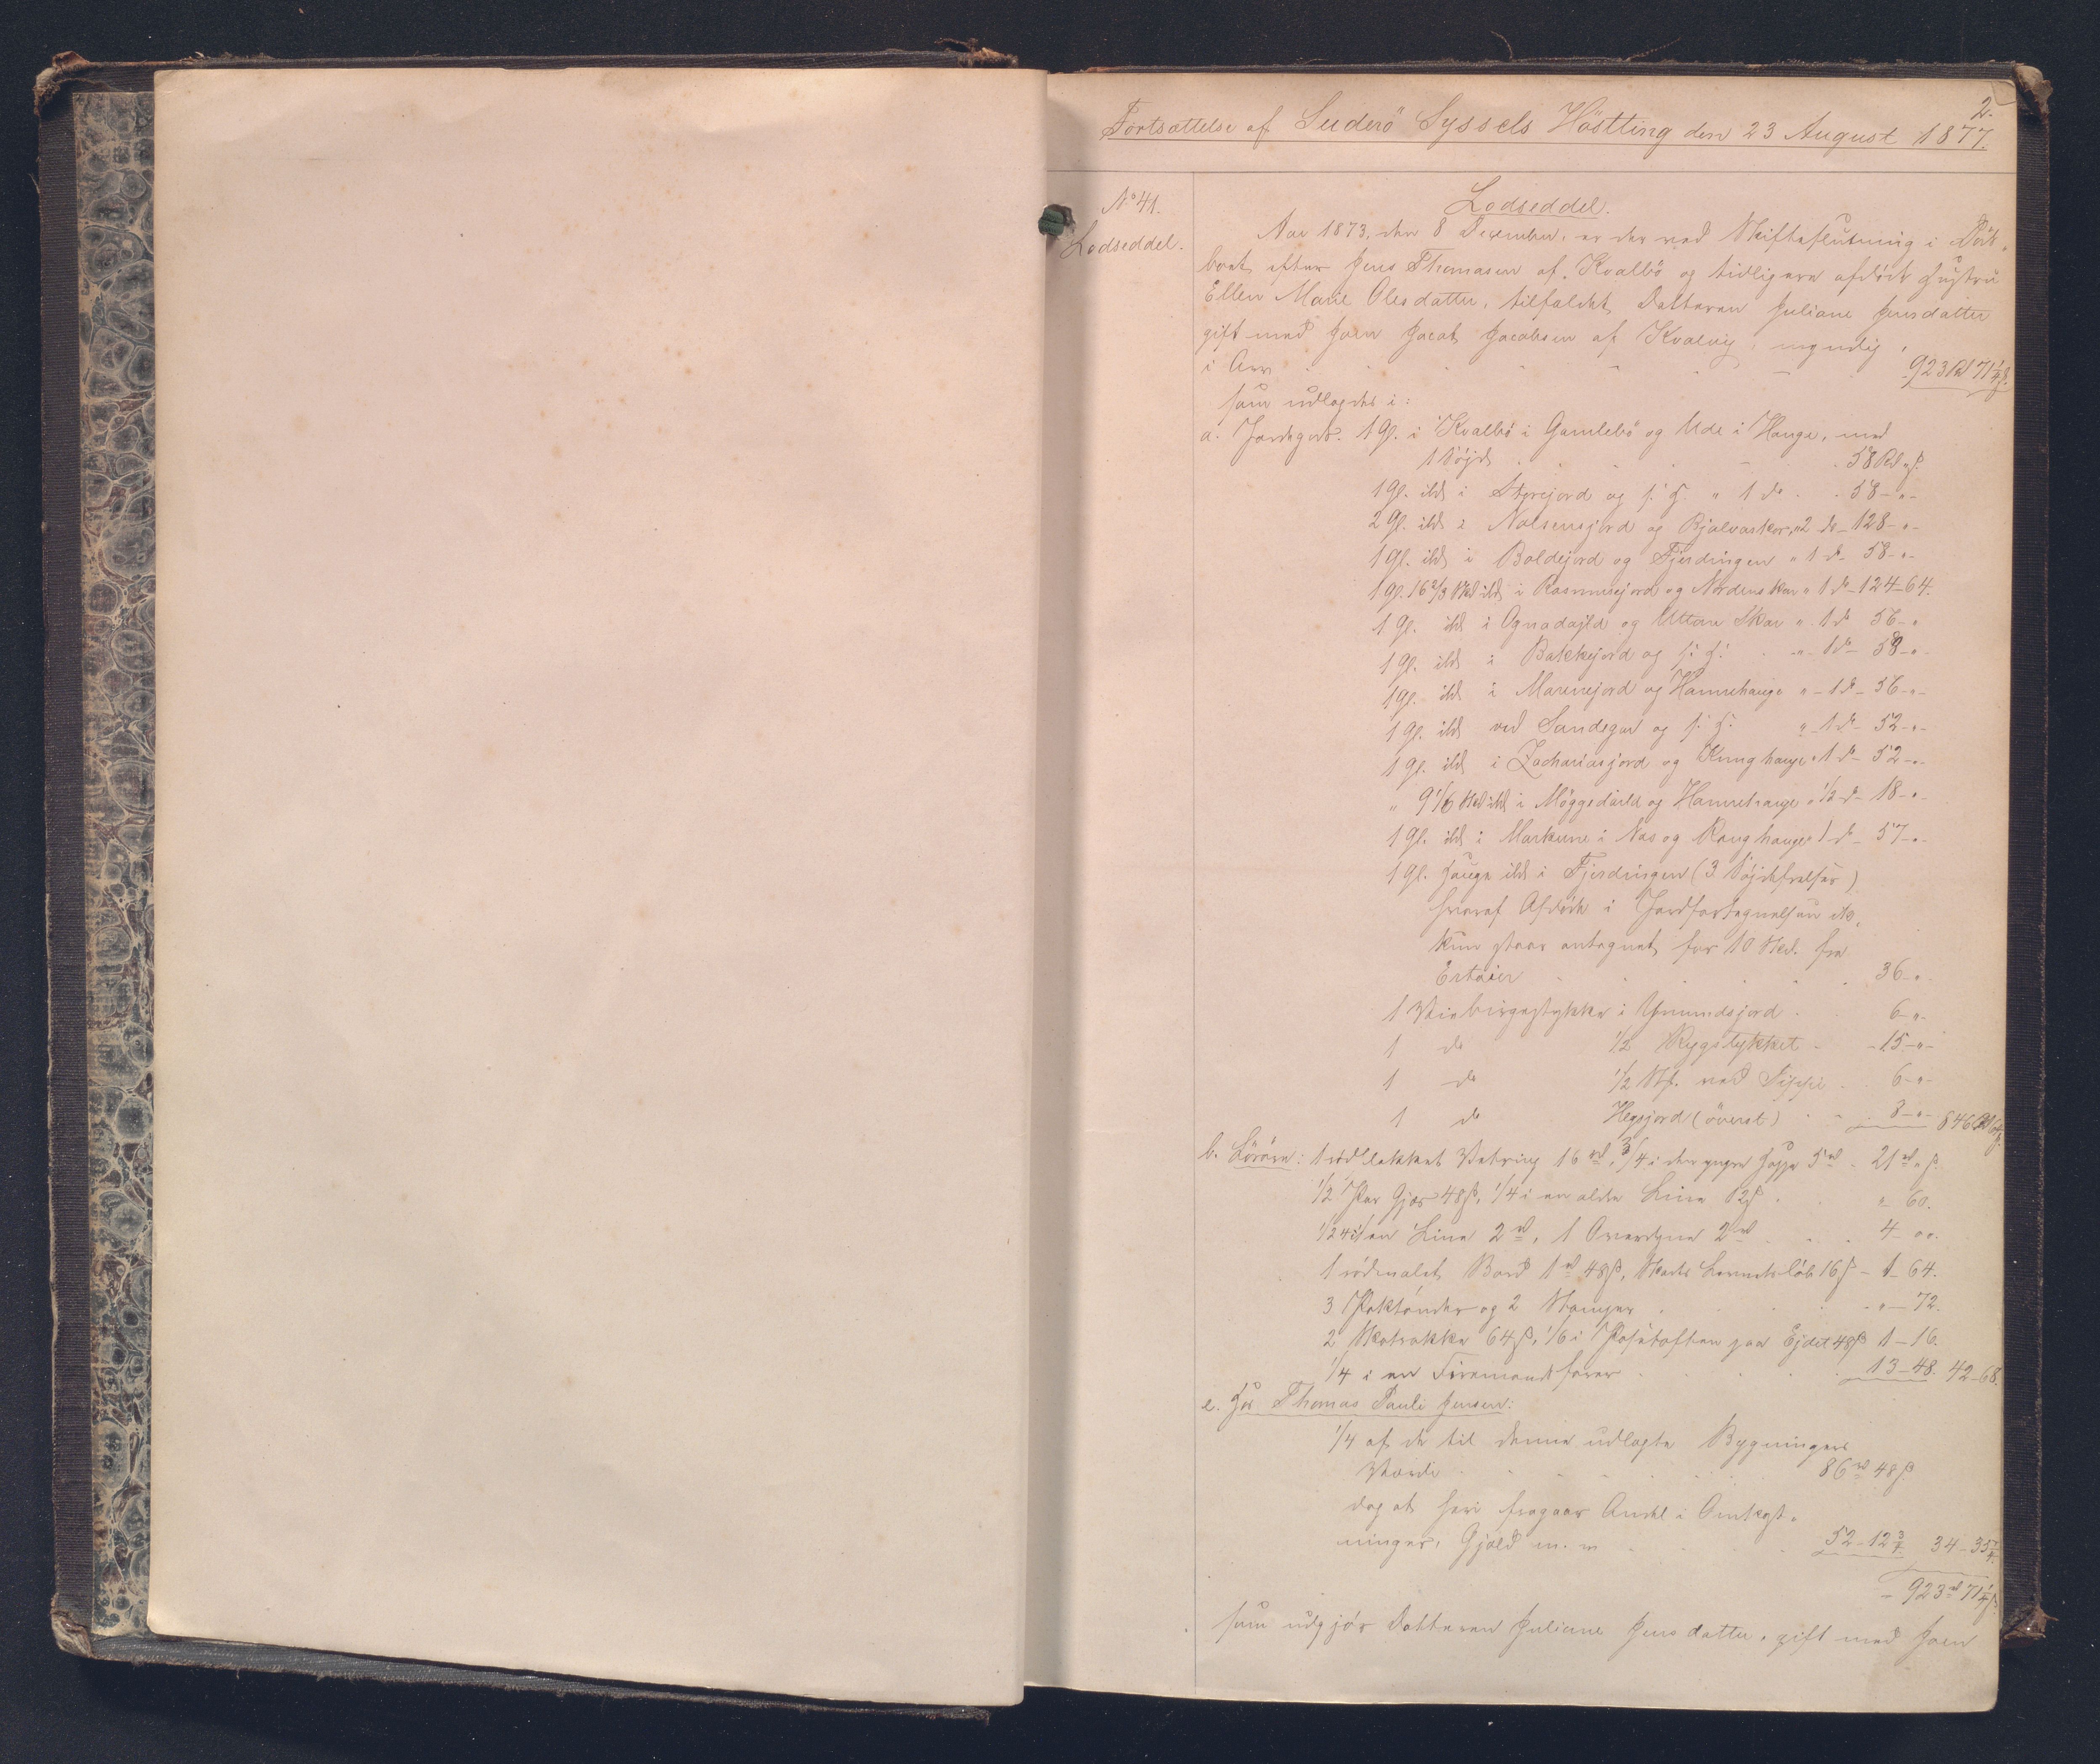 2.
Fortsættelse af Suderö Syssels Höstting den 23 August 1877.
No 41.
Lodseddel.
Lodseddel.
Aar 1873, den 8 December, er der ved Skifteslutning i Döds-
boet efter Jens Thomasen af Kvalbö og tidligere afdöde Hustru
Ellen Marie Olesdatter, tilfaldet Datteren Juliane Jensdatter
gift med Joen Jacob Jacobsen af Kvalvig, myndig,
i Arv 923 Rd 71 1/4 ß.
som udlagdes i:
a. Jordegods. 1 Gl. i Kvalbö i Gamlebö og Ude i Hauge, med
1 Söjde 58 Rd " ß.
1 Gl. ibd. i Styrejord og s. H. " 1 do 58 - " -
2 Gl. ibd. i Nolsensjord og Bjalvaskor, " 2 do - 128 - " -
1 Gl. ibd. i Boldejord og Fjerdingen " 1 do - 58 - " -
1 Gl. 16 2/3 Skd ibd. i Rasmusejord og Nordenskor " 1 do - 124 - 64.
1 Gl. ibd. i Ognadajld og Uttan Skar " 1 do 56 - "
1 Gl. ibd. i Bakkejord og s. H. - " - 1 do - 58 - " -
1 Gl. ibd. i Marnejord og Hamrehauge " - 1 do - 56 - " -
1 Gl. ibd. ved Sandegar og s. H. " - 1 do - 52 - " -
1 Gl. ibd. i Zachariasjord og Kunghauge " 1 do - 52 - " -
" 9 1/6 Skd ibd. i Möggedajld og Hamrehauge " 1/2 do - 18 - " -
1 Gl. ibd. i Markune i Nas og Ranghauge 1 do - 57 - " -
1 Gl. Hauge ibd. i Fjerdingen (3 Söjdehalser)
hvoraf Afdöde i Jordfortegnelsen
kun staar antegnet for 10 Skd. fra
36 - " -
1 Veiebirgestykke i Ymundsjord 6 - " -
1 do 1/2 Rygstykket - 15 - " -
1 do 1/2 St. ved 6 - " -
1 do Hegsjord (överst) 8 - " - 846 Rd 64 ß.
b. Lösöre: 1 rödlakket Vævring 16 rd, 3/4 i den yngre Hoppe 5 rd 21 rd " ß
1/2 Par Gjær 48 ß, 1/4 i en ældre Line 12 ß " - 60.
en Line 2 rd, 1 Overdyne 2 rd 4 - oo.
1 rödmalet Bord 1 rd 48 ß, 16 ß - 1 - 64.
3 og 2 Stamper - " - 72.
2 64 ß, 1/6 i paa Ejdet 48 ß 1 - 16.
1/4 i en Firemandsfarer 13 - 48. 42 - 68.
c. Hos Thomas Pauli Jensen:
1/4 af de til denne udlagte Bygningers
Værdi 86 rd 48 ß
dog at heri fragaar Andel i Omkost-
ninger, Gjæld m. m 52 - 12 3/4 34 - 35 1/4
- 923 rd 71 1/4 ß.
som udgjör Datteren Juliane Jensdatter, gift med Joen